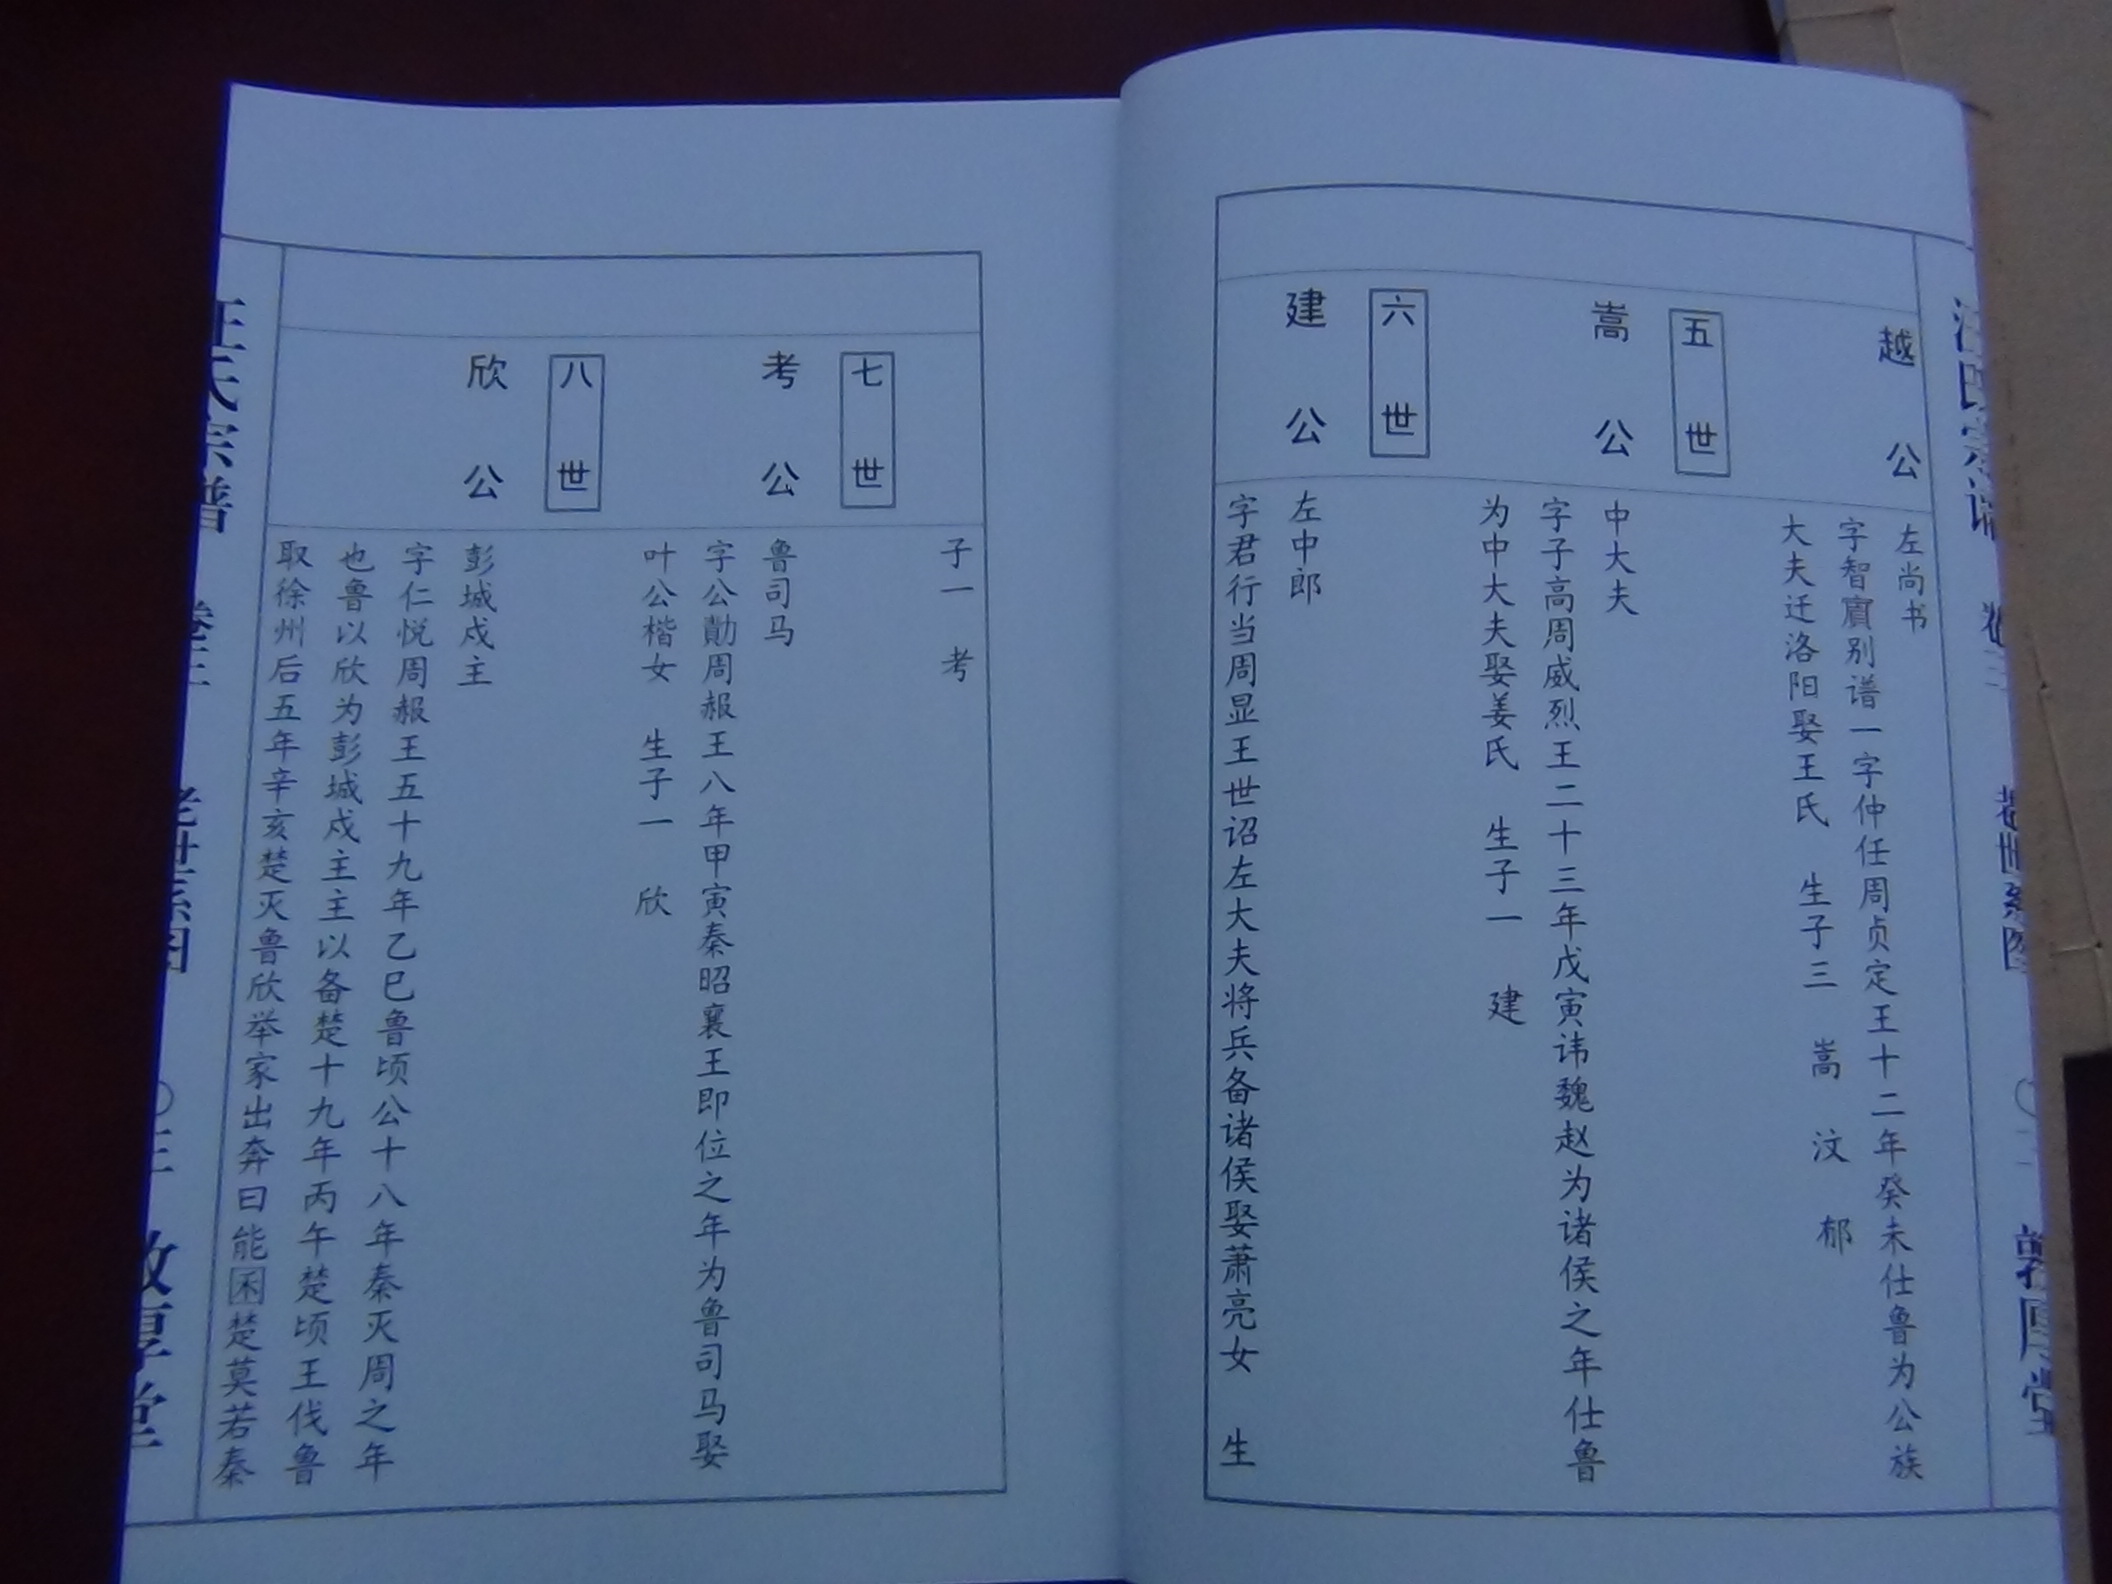 越公
左尚书
字智賔别谱一字仲任周贞定王十二年癸未仕鲁为公族
大夫迁洛阳娶王氏 生子三 嵩 汶 郁
五世
嵩公
中大夫
字子高周威烈王二十三年戊寅讳魏赵为诸侯之年仕鲁
为中大夫娶姜氏 生子一 建
六世
建公
左中郎
字君行当周显王世诏左大夫将兵备诸侯娶萧亮女 生
子一 考
七世
考公
鲁司马
字公勣周赧王八年甲寅秦昭襄王即位之年为鲁司马娶
叶公楷女 生子一 欣
八世
欣公
彭城戍主
字仁悦周赧王五十九年乙巳鲁顷公十八年秦灭周之年
也鲁以欣为彭城戍主主以备楚十九年丙午楚顷王伐鲁
取徐州后五年辛亥楚灭鲁欣举家出奔曰能困楚莫若秦
汪氏宗谱